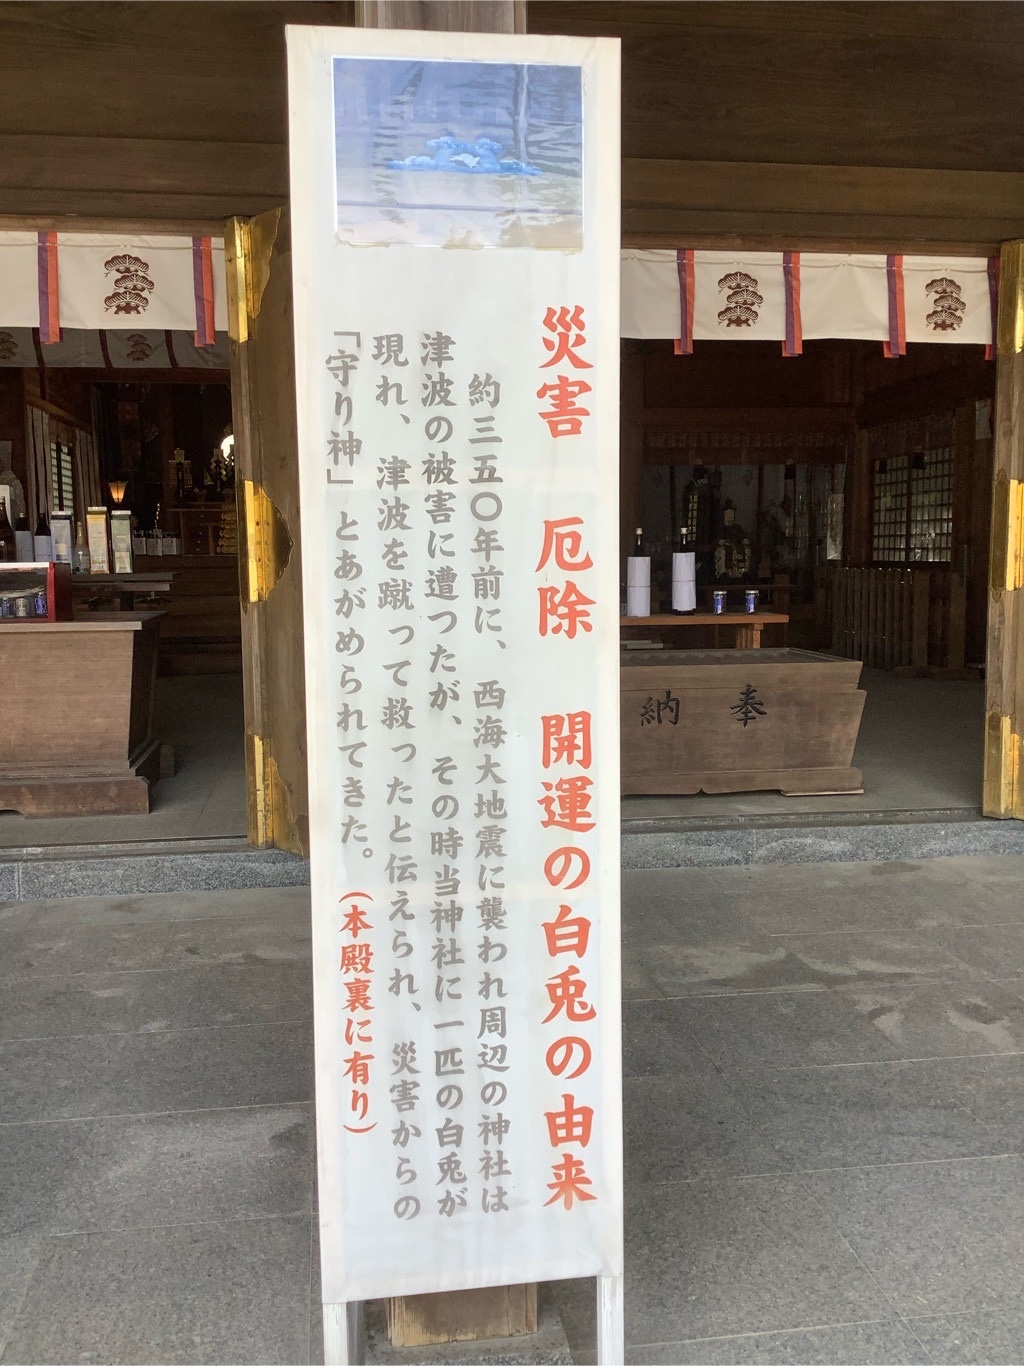 災害 厄除 開運の白兎の由来
約三五〇年前に、西海大地震に襲われ周辺の神社は
津波の被害に遭つたが、その時当神社に一匹の白兎が
現れ、津波を蹴って救ったと伝えられ、災害からの
「守り神」とあがめられてきた。(本殿裏に有り)
奉納